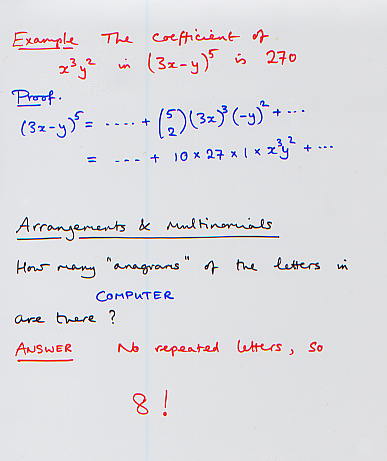 Example The coefficient of
x³y² in (3x-y)⁵ is 270
Proof.
(3x-y)⁵ = .... + (5 2)(3x)³(-y)² + ...
= ... + 10 × 27 × 1 × x³y² + ...
Arrangements & Multinomials
How many "anagrams" of the letters in
COMPUTER
are there ?
ANSWER No repeated letters, so
8!